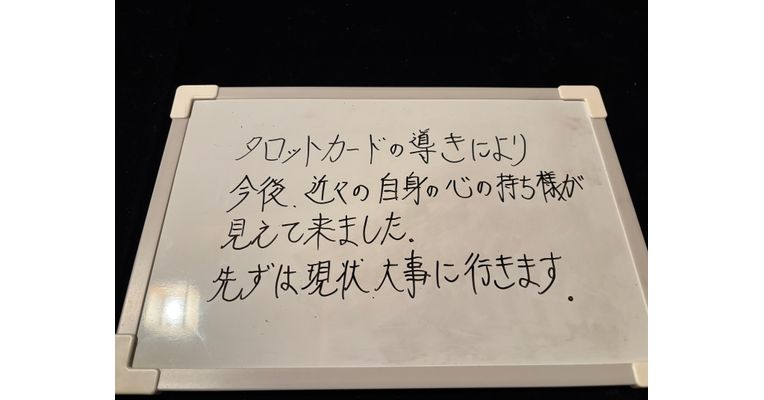 タロットカードの導きにより
今後、近々の自身の心の持ち様が
見えて来ました。
先ずは現状、大事に行きます。